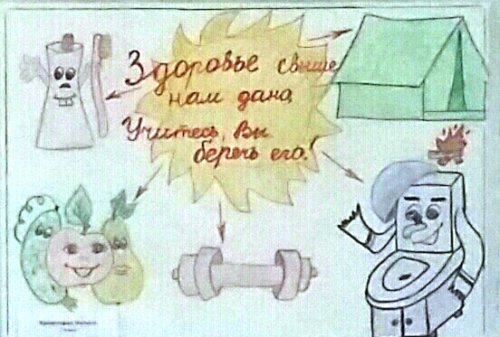 Здоровье свыше
нам дано,
Учитесь, Вы
беречь его!